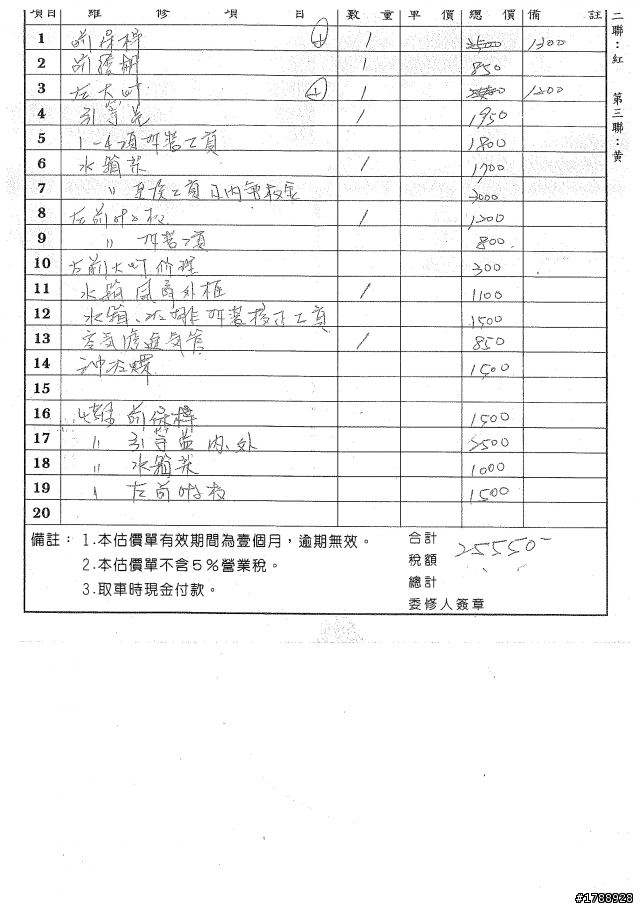 項目 維修項目 數量 單價 總價 備註
1 前保桿 ㊉ 1 1300
2 前護網 1 850
3 左大灯 ㊉ 1 1200
4 引擎蓋 1 1950
5 1-4項 工資 1800
6 水箱架 1 1700
7 〃 工資 3000
8 左前 1 1200
9 〃 800
10 左前大灯修理 300
11 水箱 外框 1 1100
12 水箱、 工資 1500
13 空氣濾進氣管 1 850
14 1500
15
16 烤漆 前保桿 1500
17 〃 引擎蓋 內、外 2500
18 〃 水箱架 1000
19 〃 左前 1500
20
備註：1.本估價單有效期間為壹個月，逾期無效。
2.本估價單不含5%營業稅。
3.取車時現金付款。
合計 25550
稅額
總計
委修人簽章
二聯：紅 第三聯：黃
#1788928